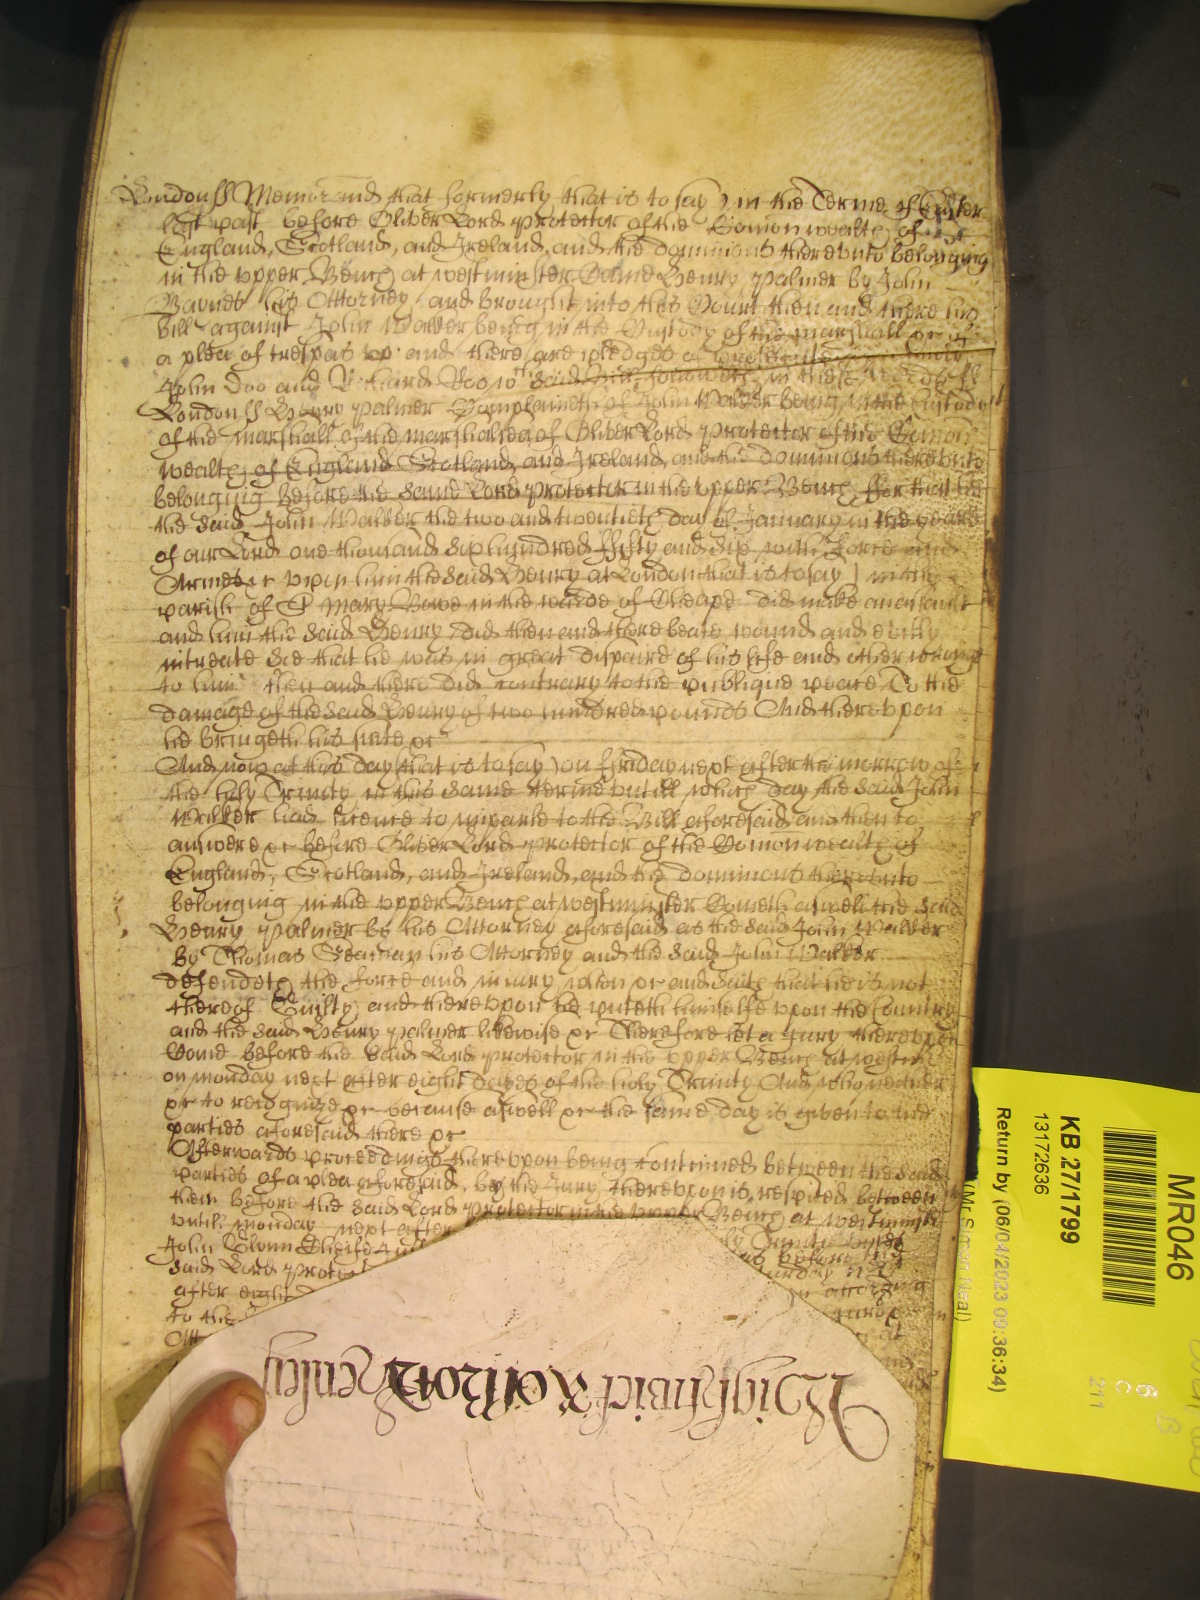 London ss Memorand that formerly that is to say) in the Terme of Easter
last past before Oliver Lord Protector of the Com̄onwealth of
England, Scotland, and Ireland, and the dominions thereunto belonging
in the upper Bench at westminster Came Henry Palmer by John
Barnes his Attorney and brought into this Court then and there his
bill against John Walker being in the Custody of the marshall &c of
a plea of trespas &c and there are pledges of
John Doo and Richard Roo wch said Bill followeth in these words ss
London ss Henry Palmer Complaineth of John Walker being in the Custody
of the marshall of the marshalsea of Oliver Lord Protector of the Com̄on
wealth of England Scotland, and Ireland, and the dominions thereunto
belonging before the said Lord Protector in the upper Bench for that hee
the said John Walker the two and twentieth day of January in the yeare
of our Lord one thousand six hundred fifty and six with force and
Armes &c upon him the said Henry at London that is to say) in the
parish of St Mary Bowe in the warde of Cheape did make an assault
and him the said Henry did then and there beate wound and evilly
intreate Soe that he was in great dispaire of his life and other wrongs
to him then and there did contrary to the publique peace To the
damage of the said Henry of two hundred pounds And thereupon
he bringeth his suite &c
And now at this day that is to say) on friday next after the morrow of
the holy Trinity in this same terme untill which day the said John
Walker had licence to imparle to the Bill aforesaid and then to
answere &c before Oliver Lord Protector of the Com̄onwealth of
England, Scotland, and Ireland, and the dominions thereunto
belonging in the upper Bench at westminster Cometh aswell the said
Henry Palmer by his Attorney aforesaid as the said John Walker
by Thomas Seaman his Attorney and the said John Walker
defendeth the force and iniury when &c and saith that he is not
thereof Guilty and thereupon he putteth himselfe upon the Country
and the said Henry Palmer likewise &c Therefore let a Jury thereupon
Come before the said Lord Protector in the upper Bench at westmr
on monday next after eight dayes of the holy Trinity And who neither
&c to recognize &c because aswell &c the same day is given to the
parties aforesaid there &c
Afterwards proceedings thereupon being continued betweene the said
parties of a plea aforesaid, by the Jury thereupon is respited betweene
them before the said Lord Protector in the upper Bench at westminster
until monday next after holy Trinity
John Glynn Cheife before the
said Lord Protec
after eight according
to the
Wightwick & Horton Henley
MR046
KB 27/1799
13172636
Return by (06/04/2023 09:36:34)
211